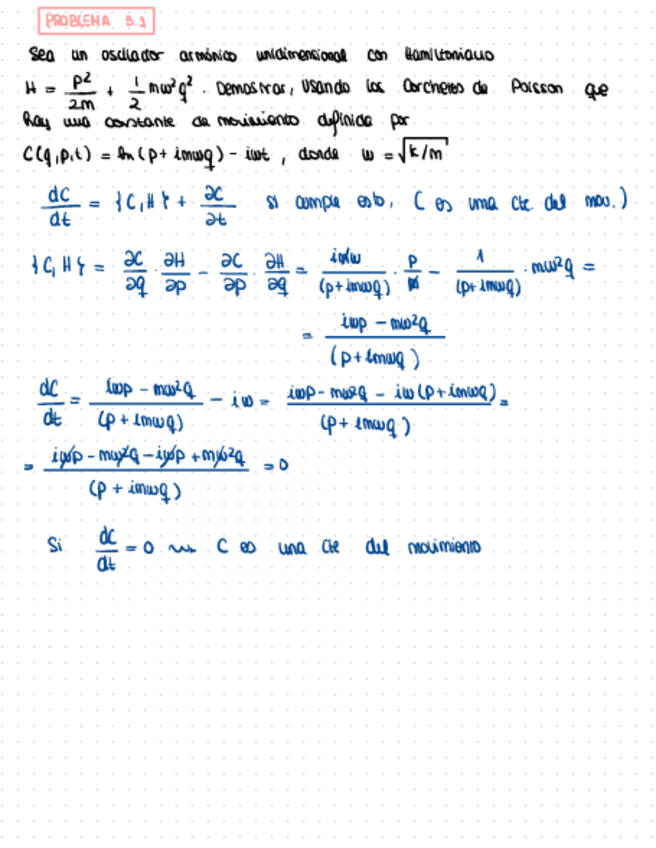 PROBLEMA 3.1
Sea un oscilador armónico unidimensional con Hamiltoniano
H = p²/2m + 1/2 mω²q² . Demostrar, usando los Corchetes de Poisson que
hay una constante de movimiento definida por
C(q,p,t) = ln(p + imωq) - iωt , donde ω = √k/m
dC/dt = {C,H} + ∂C/∂t si cumple esto, C es una cte del mov.)
{C,H} = ∂C/∂q · ∂H/∂p - ∂C/∂p · ∂H/∂q = imω/(p+imωq) · p/m - 1/(p+imωq) · mω²q =
= iωp - mω²q/(p+imωq)
dC/dt = iωp - mω²q/(p+imωq) - iω = iωp - mω²q - iω(p+imωq)/(p+imωq) =
= iωp - mω²q - iωp + mω²q/(p + imωq) = 0
Si dC/dt = 0 ⇝ C es una cte del movimiento